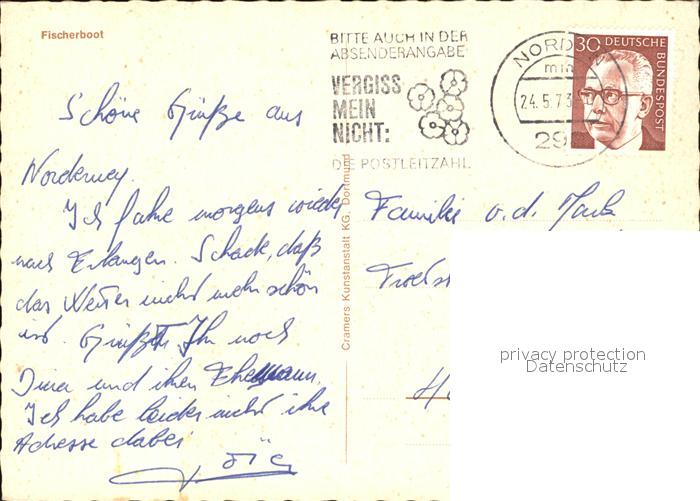 Fischerboot
BITTE AUCH IN DER
ABSENDERANGABE
VERGISS
MEIN
NICHT:
DIE POSTLEITZAHL
NORD
24.5.73
29
30 DEUTSCHE
BUNDESPOST
Schöne Grüße aus
Norderney.
Ich fahre morgens wieder
nach Erlangen. Schade, daß
das Wetter nicht mehr schön
ist. Grüßt Ihr noch
und ihren Ehemann.
Ich habe leider nicht ihre
Adresse dabei
Cramers Kunstanstalt KG. Dortmund
Familie v. d.
privacy protection
Datenschutz